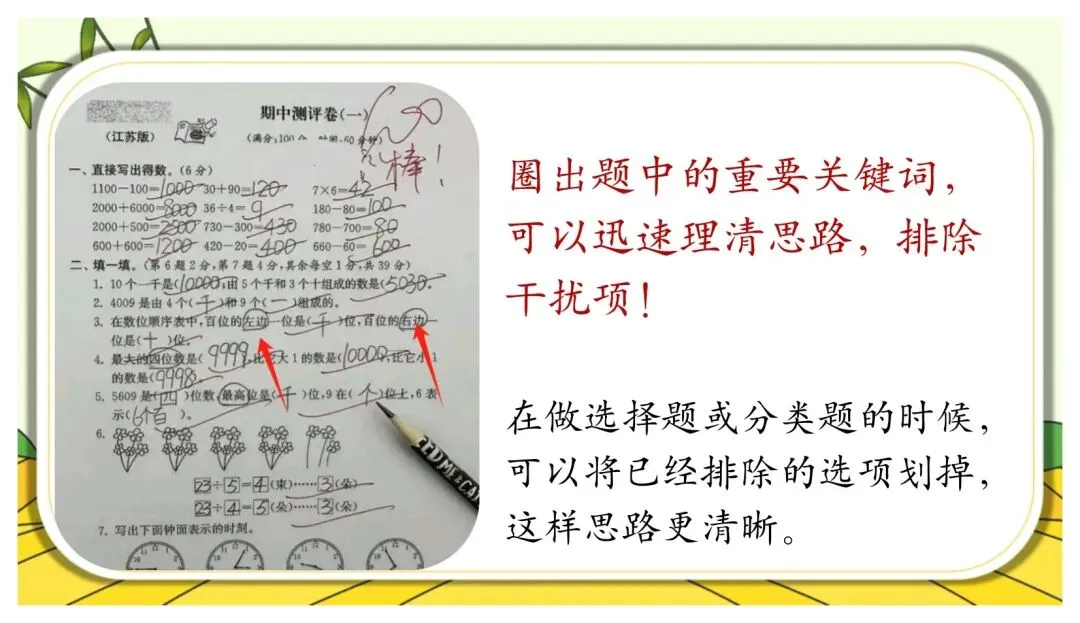 期中测评卷(一)
100
棒!
(江苏版)
(满分:100分 时间:60分钟)
一、直接写出得数。(6分)
1100-100=1000 30+90=120 7×6=42
2000+6000=8000 36÷4=9 180-80=100
2000+500=2500 730-300=430 780-700=80
600+600=1200 420-20=400 660-60=600
二、填一填。(第6题2分,第7题4分,其余每空1分,共39分)
1. 10个一千是(10000);由5个千和3个十组成的数是(5030)。
2. 4009是由4个(千)和9个(一)组成的。
3. 在数位顺序表中,百位的左边一位是(千)位,百位的右边一
位是(十)位。
4. 最大的四位数是(9999),比它大1的数是(10000),比它小1
的数是(9998)。
5. 5609是(四)位数,最高位是(千)位,9在(个)位上,6表
示(6个百)。
6.
23÷5=4(束)……3(朵)
23÷4=5(朵)……3(朵)
7. 写出下面钟面表示的时刻。
圈出题中的重要关键词,
可以迅速理清思路,排除
干扰项!
在做选择题或分类题的时候,
可以将已经排除的选项划掉,
这样思路更清晰。